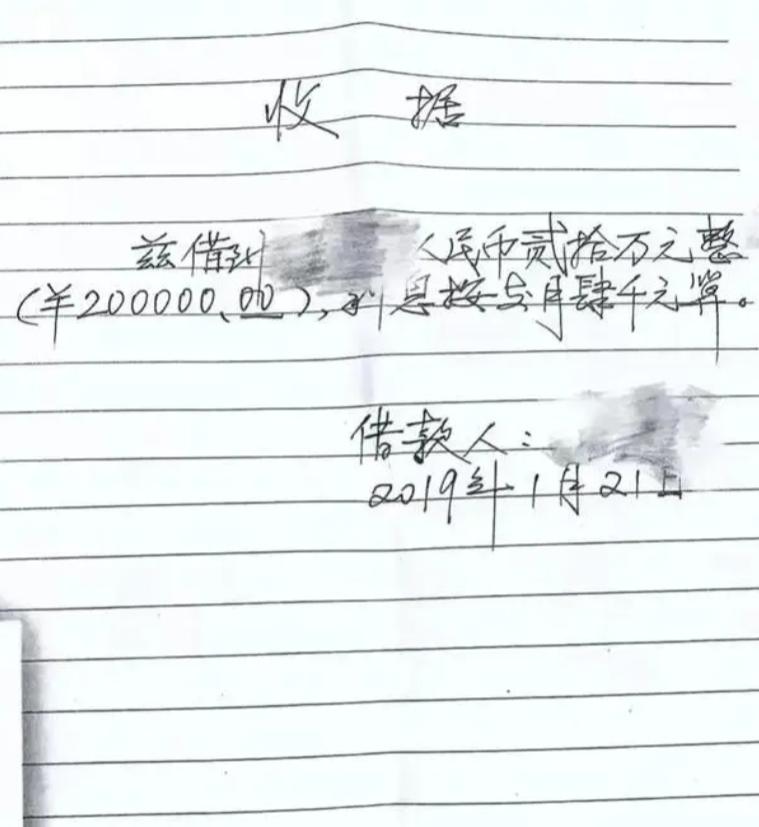 收 据
兹借到 人民币贰拾万元整
(¥200000.00),利息按每月肆千元算。
借款人:
2019年1月21日